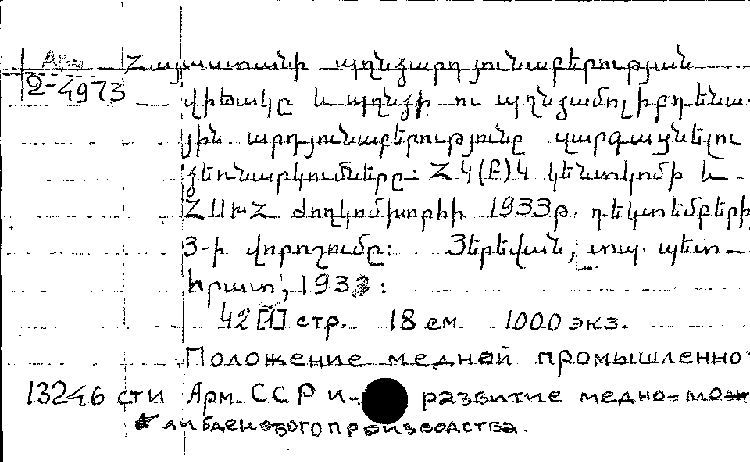 Հայաստանի պղնձարդյունաբերության
Զ-4973
վիճակը և պղնձի ու պղնձամոլիբդենա-
յին արդյունաբերությունը զարգացնելու
ձեռնարկումները: ՀԿ(բ)Կ կենտկոմի և
ՀՍԽՀ ժողկոմխորհի 1933թ. դեկտեմբերի
3-ի վորոշումը: Յերեվան, պետ-
հրատ, 193
42 [1] стр. 18 см 1000 экз.
Положение медной промышленно-
13246 сти Арм. ССР и развитие медно-мо
либденового производства.